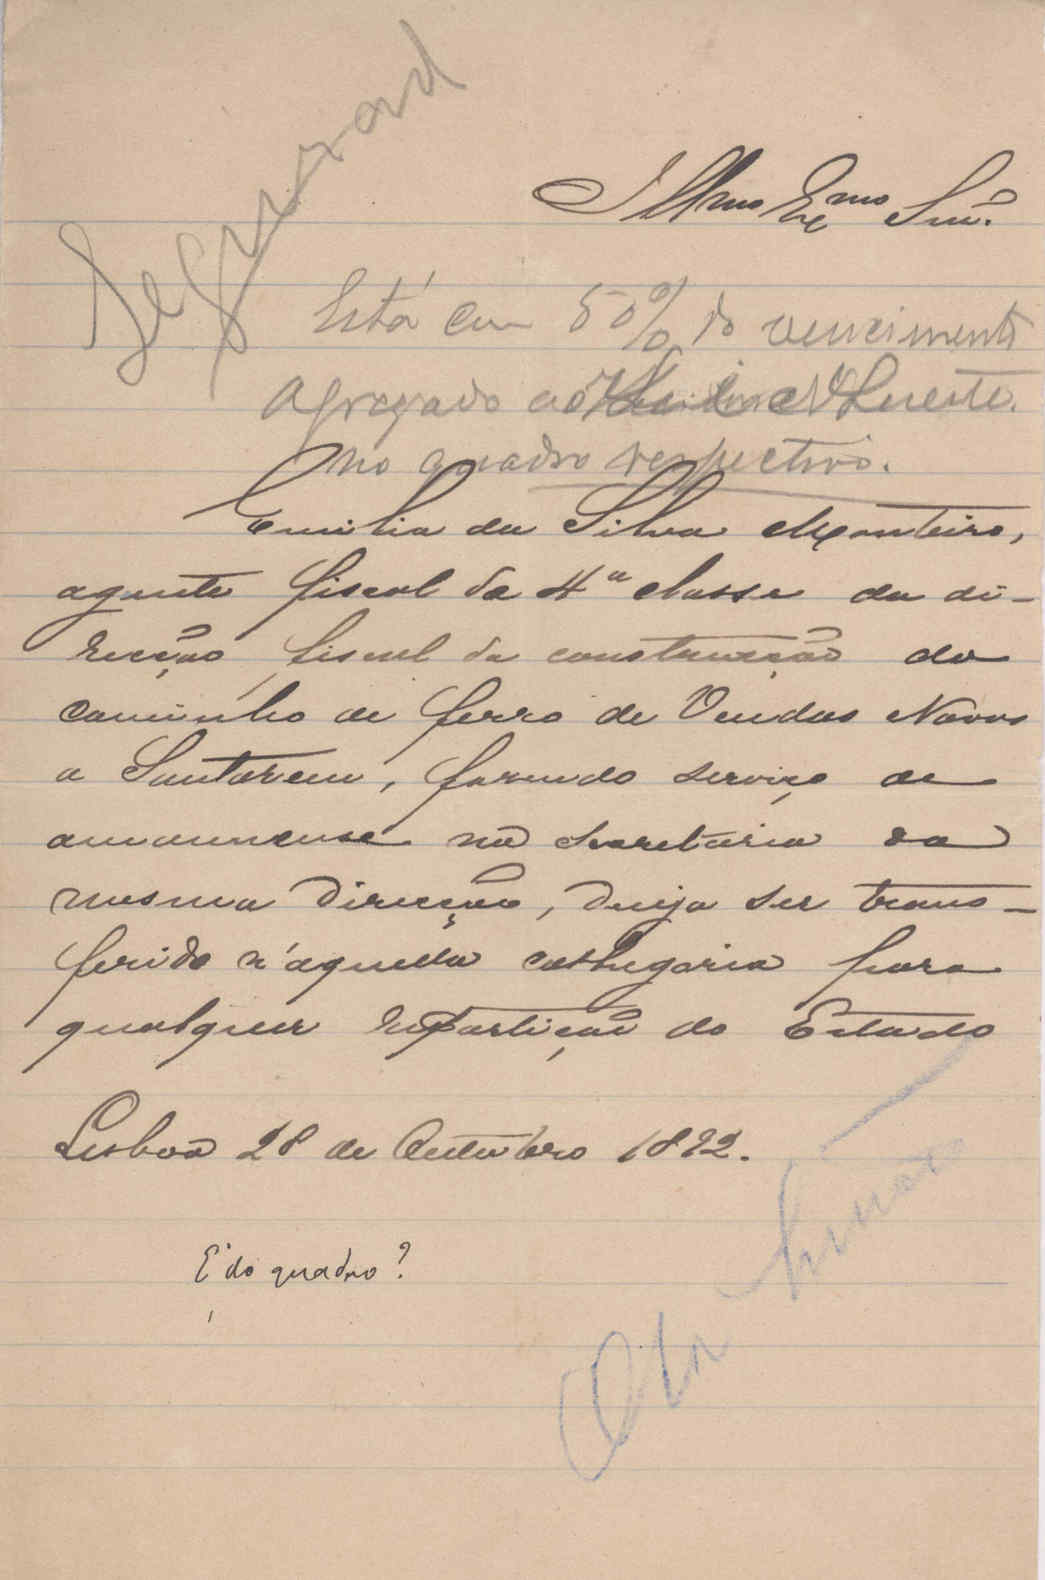 Illmo Exmo Snr.
Está com 50% do vencimento
Agregado ao
no quadro respectivo.
Emilia da Silva Monteiro,
agente fiscal da 4ª classe da di-
recção fiscal da construcção do
caminho de ferro de Vendas Novas
a Santarem, fazendo serviço de
amanuense na secretaria da
mesma direcção, deseja ser trans-
ferido n'aquella cathegoria para
qualquer repartição do Estado
Lisboa 28 de Outubro 1892.
É do quadro?